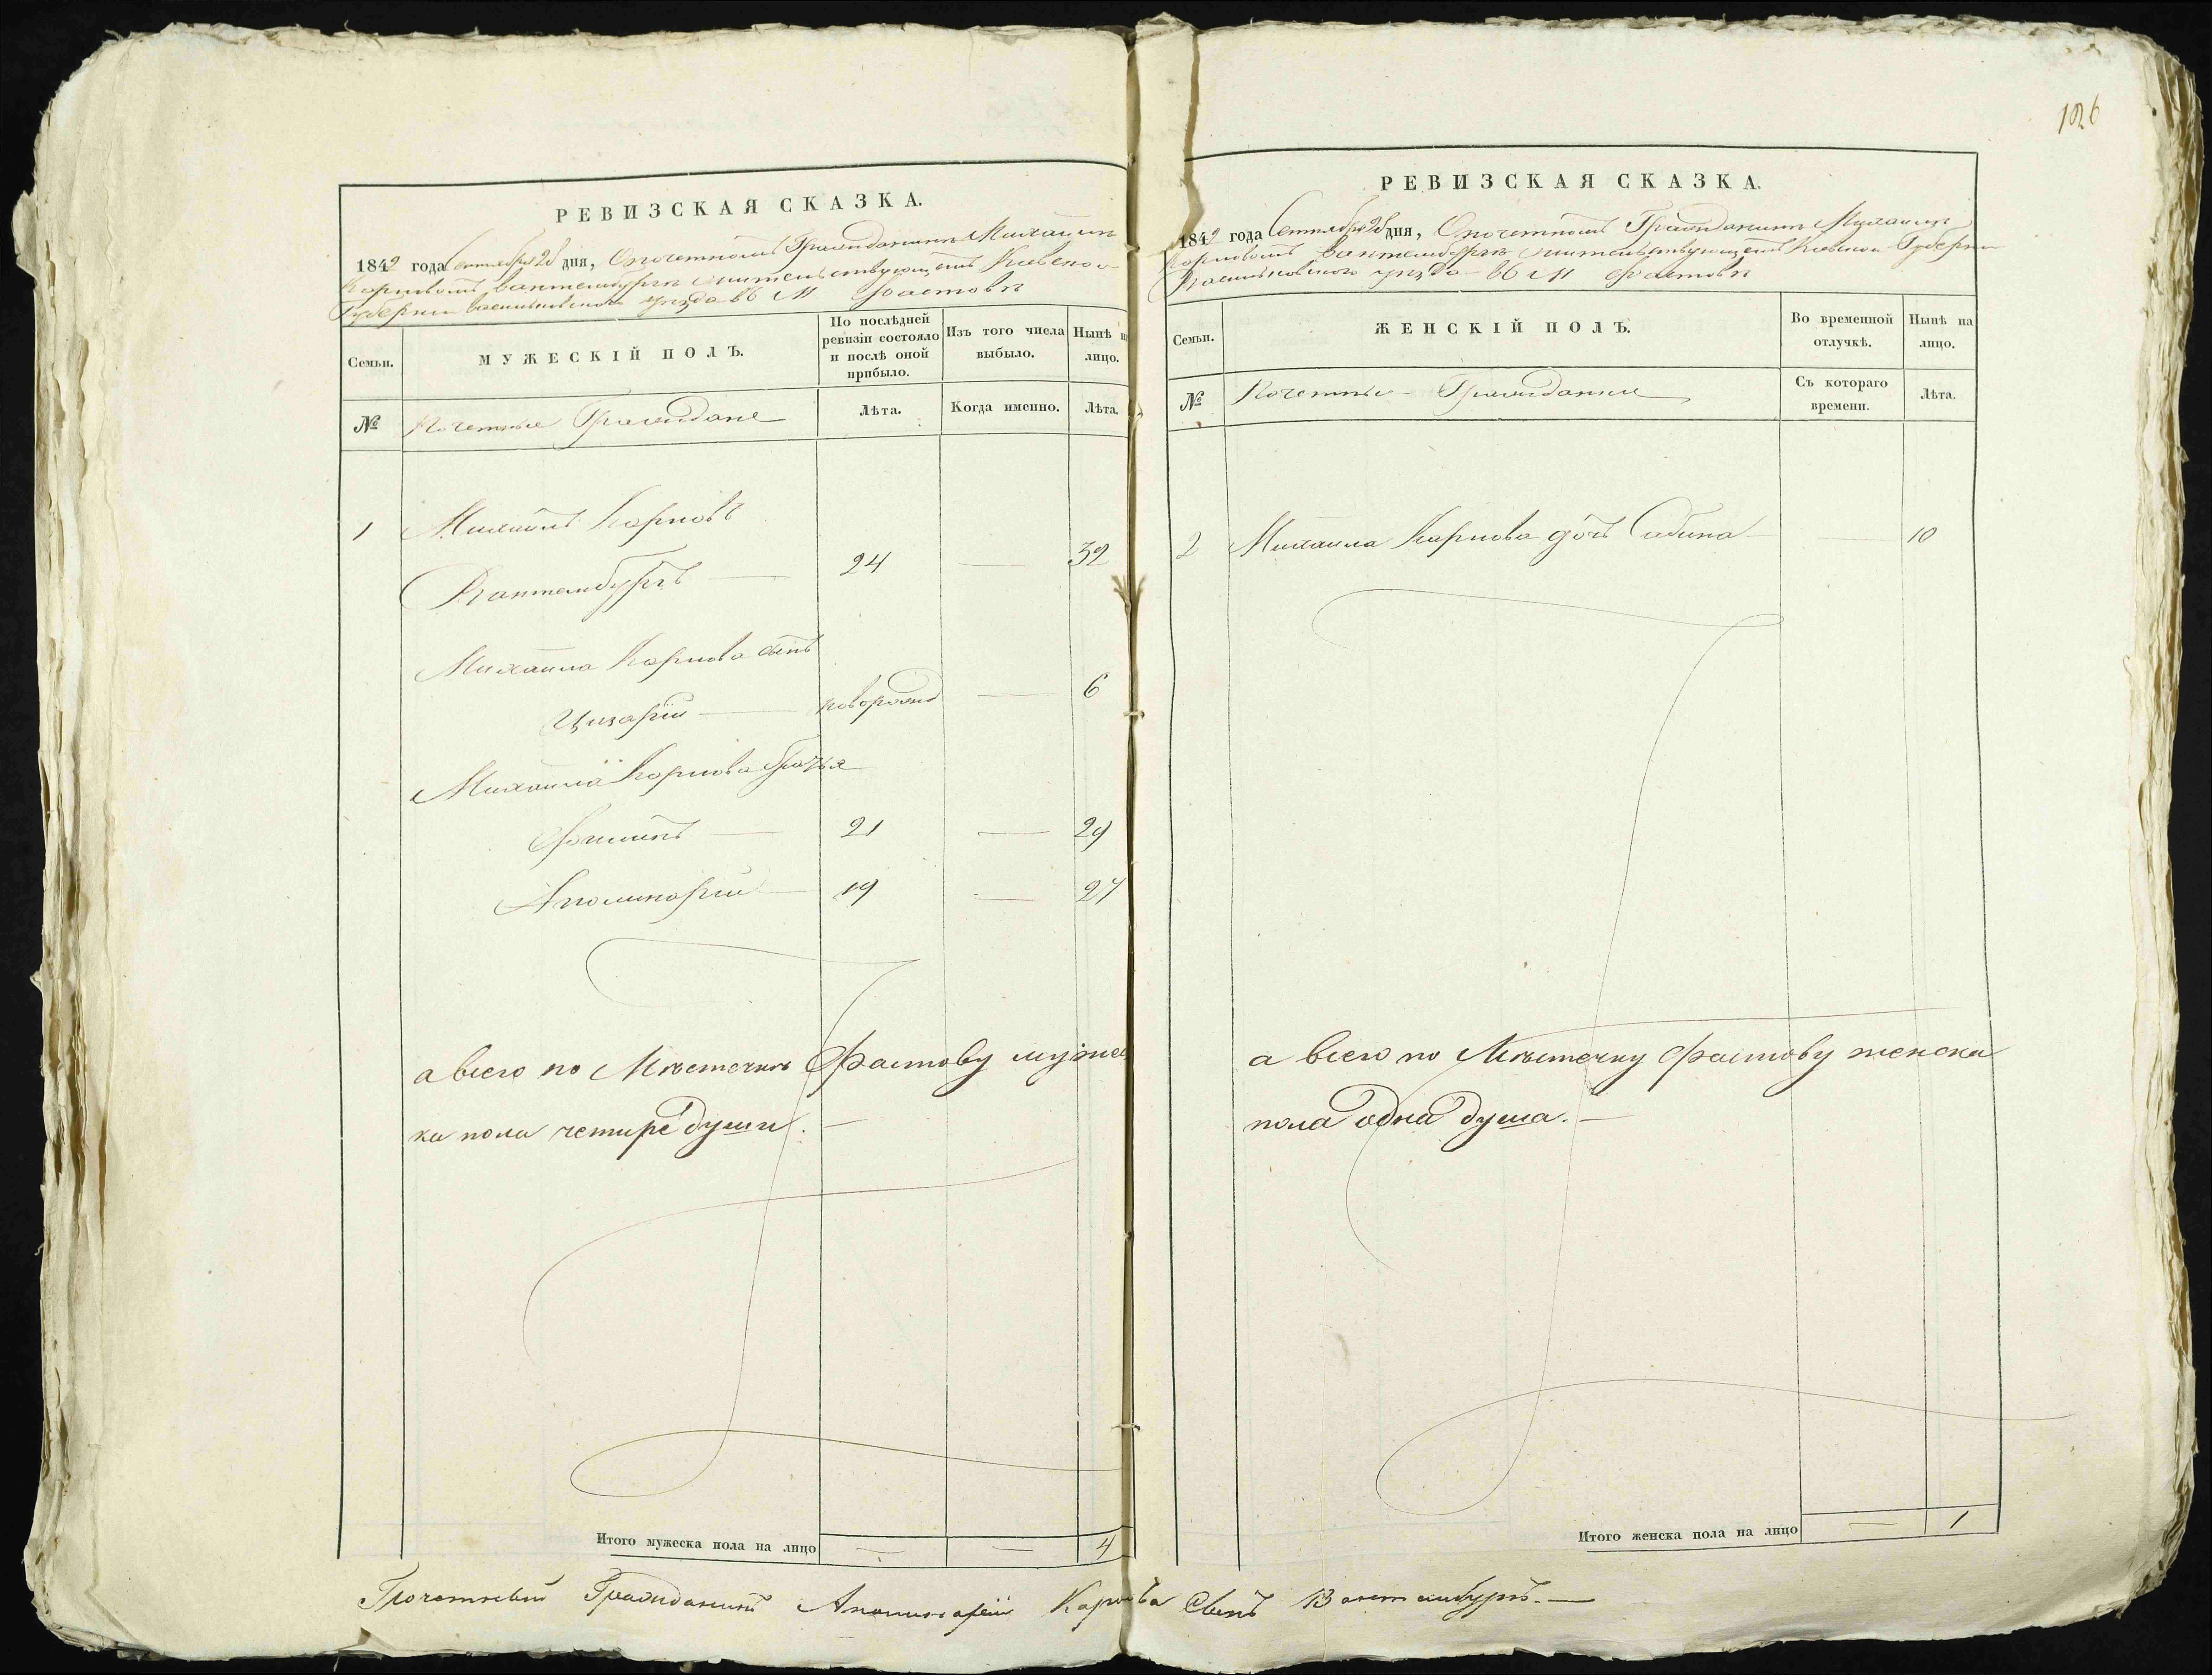 126
РЕВИЗСКАЯ СКАЗКА.
1842 года Сентября 28 дня, О почетномъ Гражданинѣ Михаилѣ
Карловомъ Вантембургѣ жительствующемъ Кіевской
Губерніи Васильковскаго уѣзда въ М Фастовѣ
Семьи.
МУЖЕСКІЙ ПОЛЪ.
По послѣдней ревизіи состояло и послѣ оной прибыло.
Изъ того числа выбыло.
Нынѣ на лицо.
№
Почетные Граждане
Лѣта.
Когда именно.
Лѣта.
1 Михаилъ Карловъ
Вантембургъ — 24 — 32
Михаила Карлова сынъ
Цизарій — новорожд — 6
Михаила Карлова братья
Филипъ — 21 — 29
Аполинарій — 19 — 27
а всего по Мѣстечкѣ Фастову муже
ка пола четире души. —
Итого мужеска пола на лицо — — 4
РЕВИЗСКАЯ СКАЗКА.
1842 года Сентября 28 дня, О почетномъ Гражданинѣ Михаилѣ
Карловомъ Вантембургѣ жительствующемъ Кіевской Губерніи
Васильковскаго уѣзда въ М Фастовѣ
Семьи.
ЖЕНСКІЙ ПОЛЪ.
Во временной отлучкѣ.
Нынѣ на лицо.
№
Почетные Граждане
Съ котораго времени.
Лѣта.
2 Михаила Карлова дочь Сабина — 10
а всего по Мѣстечку Фастову женска
пола одна душа. —
Итого женска пола на лицо — 1
Почетный Гражданинъ Аполинарій Карлова Сынъ Вантембургъ. —